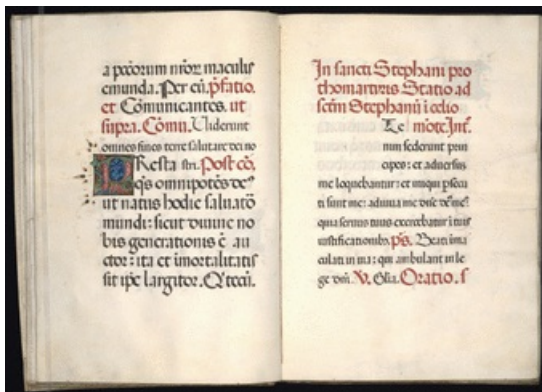 a pccorum nr̄or maculis
emunda. Per eū. p̄fatio.
et Cōmunicantes. ut
supra. Cōmu. Viderunt
omnes fines terre salutare dei no
PResta stri. Post cō.
q̄s omnipotēs de9
ut natus hodie saluatō
mundi: sicut diuine no
bis generationis ē au
ctor: ita et īmortalitatis
sit ip̄e largitor. Q tecū.
In sancti Stephani pro
thomartiris Statio ad
sctm̄ Stephanū ī celio
mōte. Int̄.
nim sederunt prin
cipes: et aduersus
me loquebantur: et iniqui p̄secu
ti sunt me: adiuua me dn̄e de9 me9
quia seruus tuus exercebatur ī tuis
iustificationib9. p̄s. Beati īma
culati in uia: qui ambulant in le
ge dn̄i. V. Glia. Oratio.